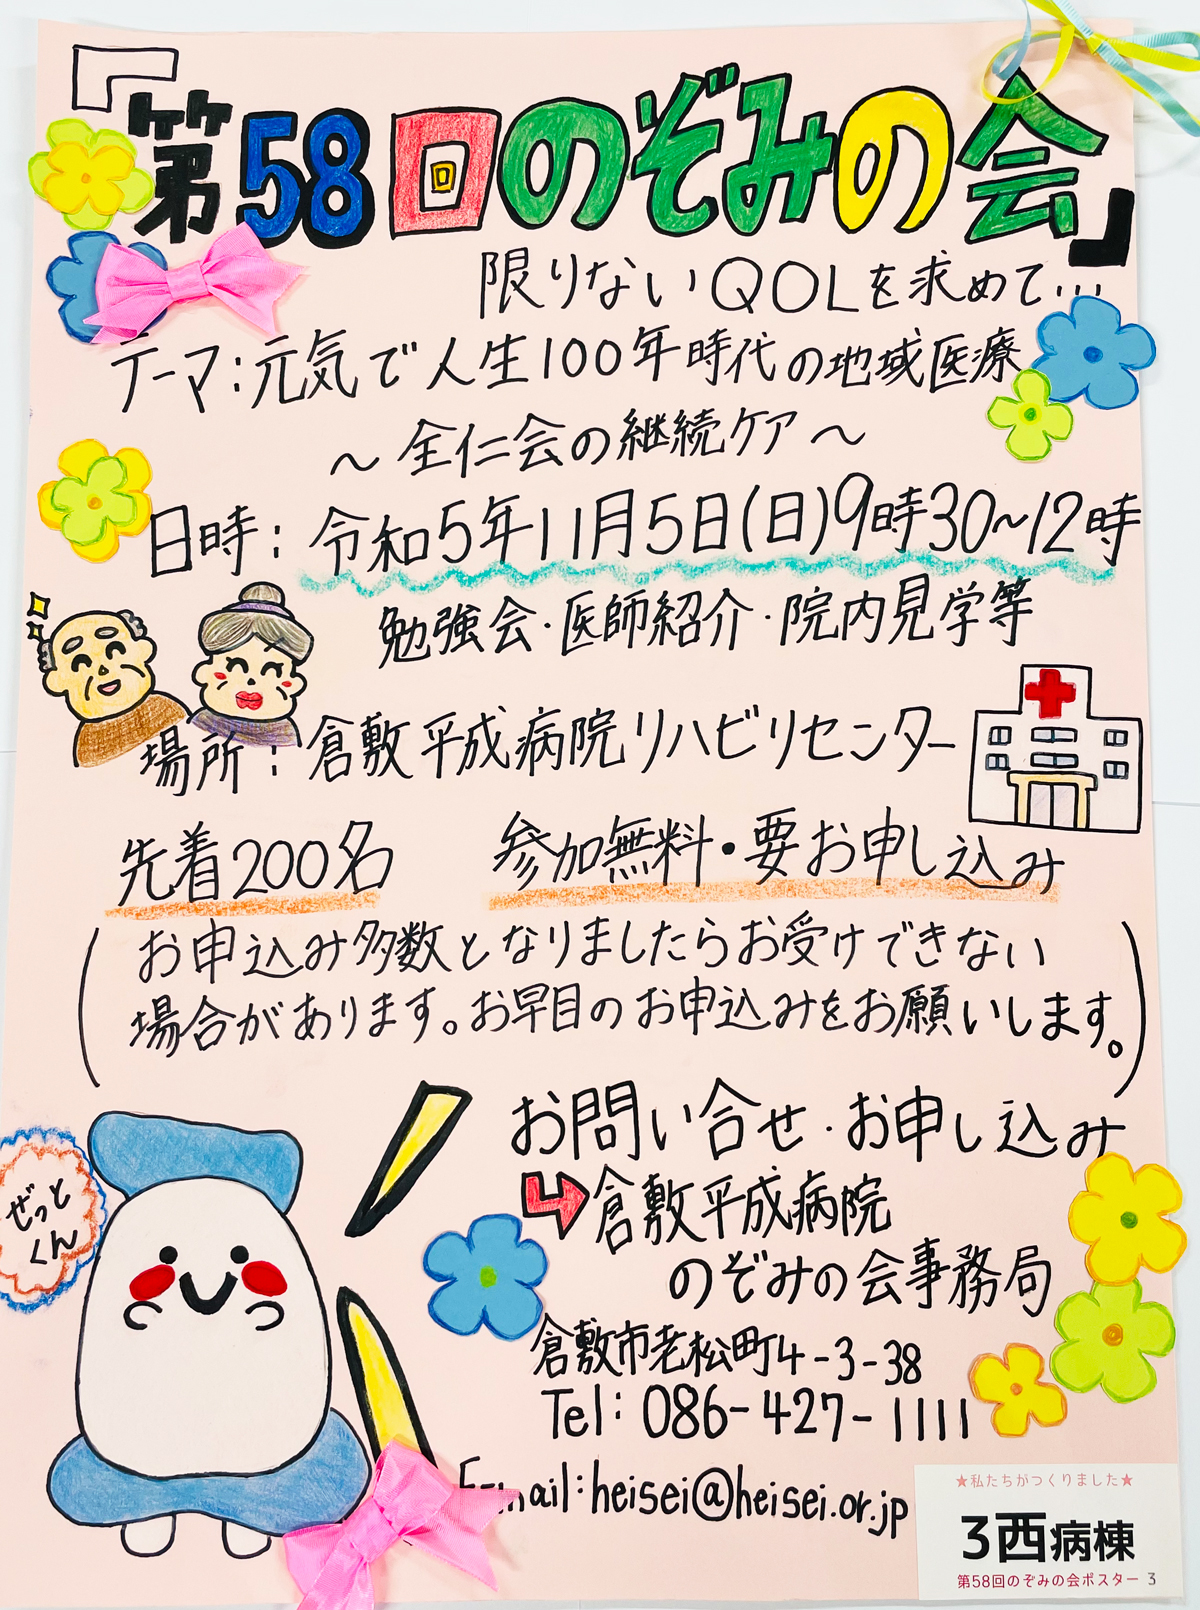 「第58回のぞみの会」
限りないQOLを求めて…
テーマ:元気で人生100年時代の地域医療
～全仁会の継続ケア～
日時:令和5年11月5日(日)9時30～12時
勉強会・医師紹介・院内見学等
場所:倉敷平成病院リハビリセンター
先着200名 参加無料・要お申し込み
(お申込み多数となりましたらお受けできない
場合があります。お早目のお申込みをお願いします。)
お問い合せ・お申し込み
倉敷平成病院
のぞみの会事務局
倉敷市老松町4-3-38
Tel:086-427-1111
E-mail:heisei@heisei.or.jp
ぜっと
くん
★私たちがつくりました★
3西病棟
第58回のぞみの会ポスター 3